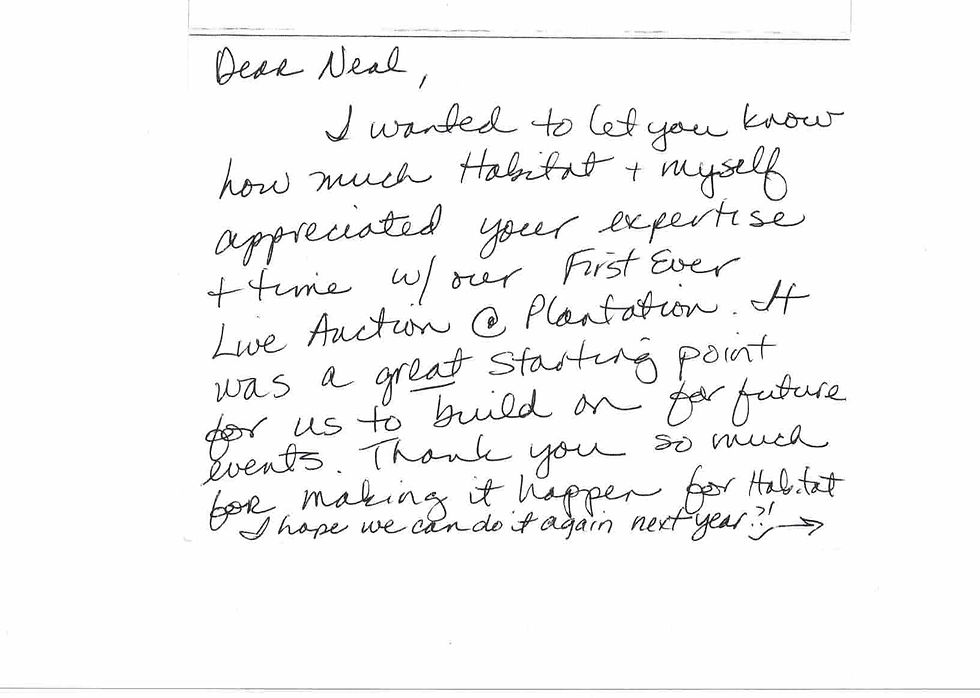 Dear Neal,
I wanted to let you know
how much Habitat + myself
appreciated your expertise
+ time w/ our First Ever
Live Auction @ Plantation. It
was a great starting point
for us to build on for future
events. Thank you so much
for making it happen for Habitat
I hope we can do it again next year?! →